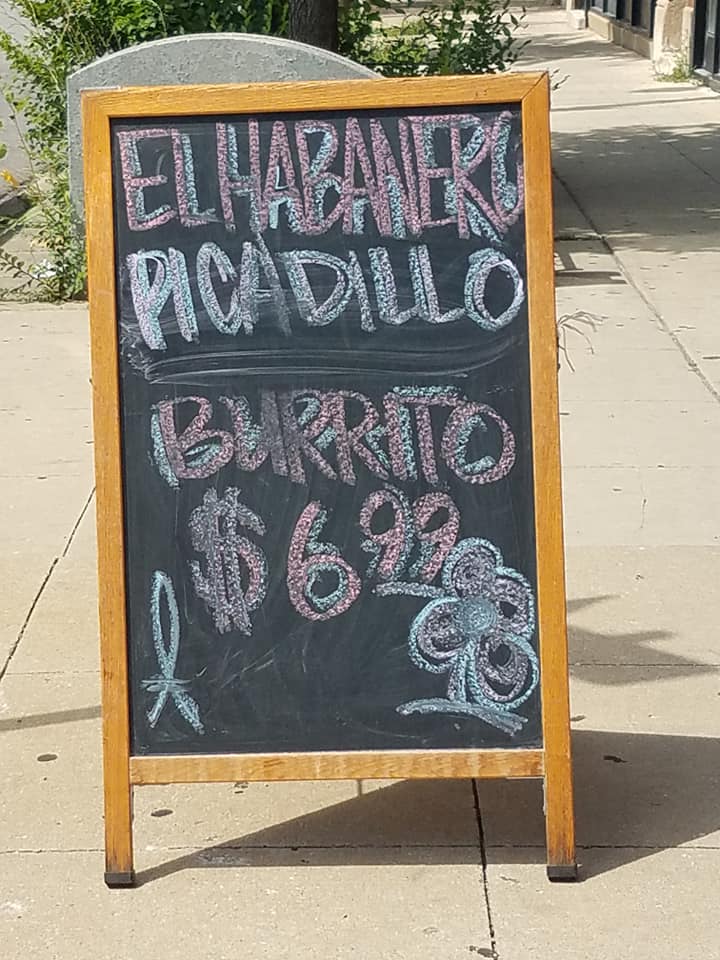 EL HABANERO
PICADILLO
BURRITO
$ 6.99